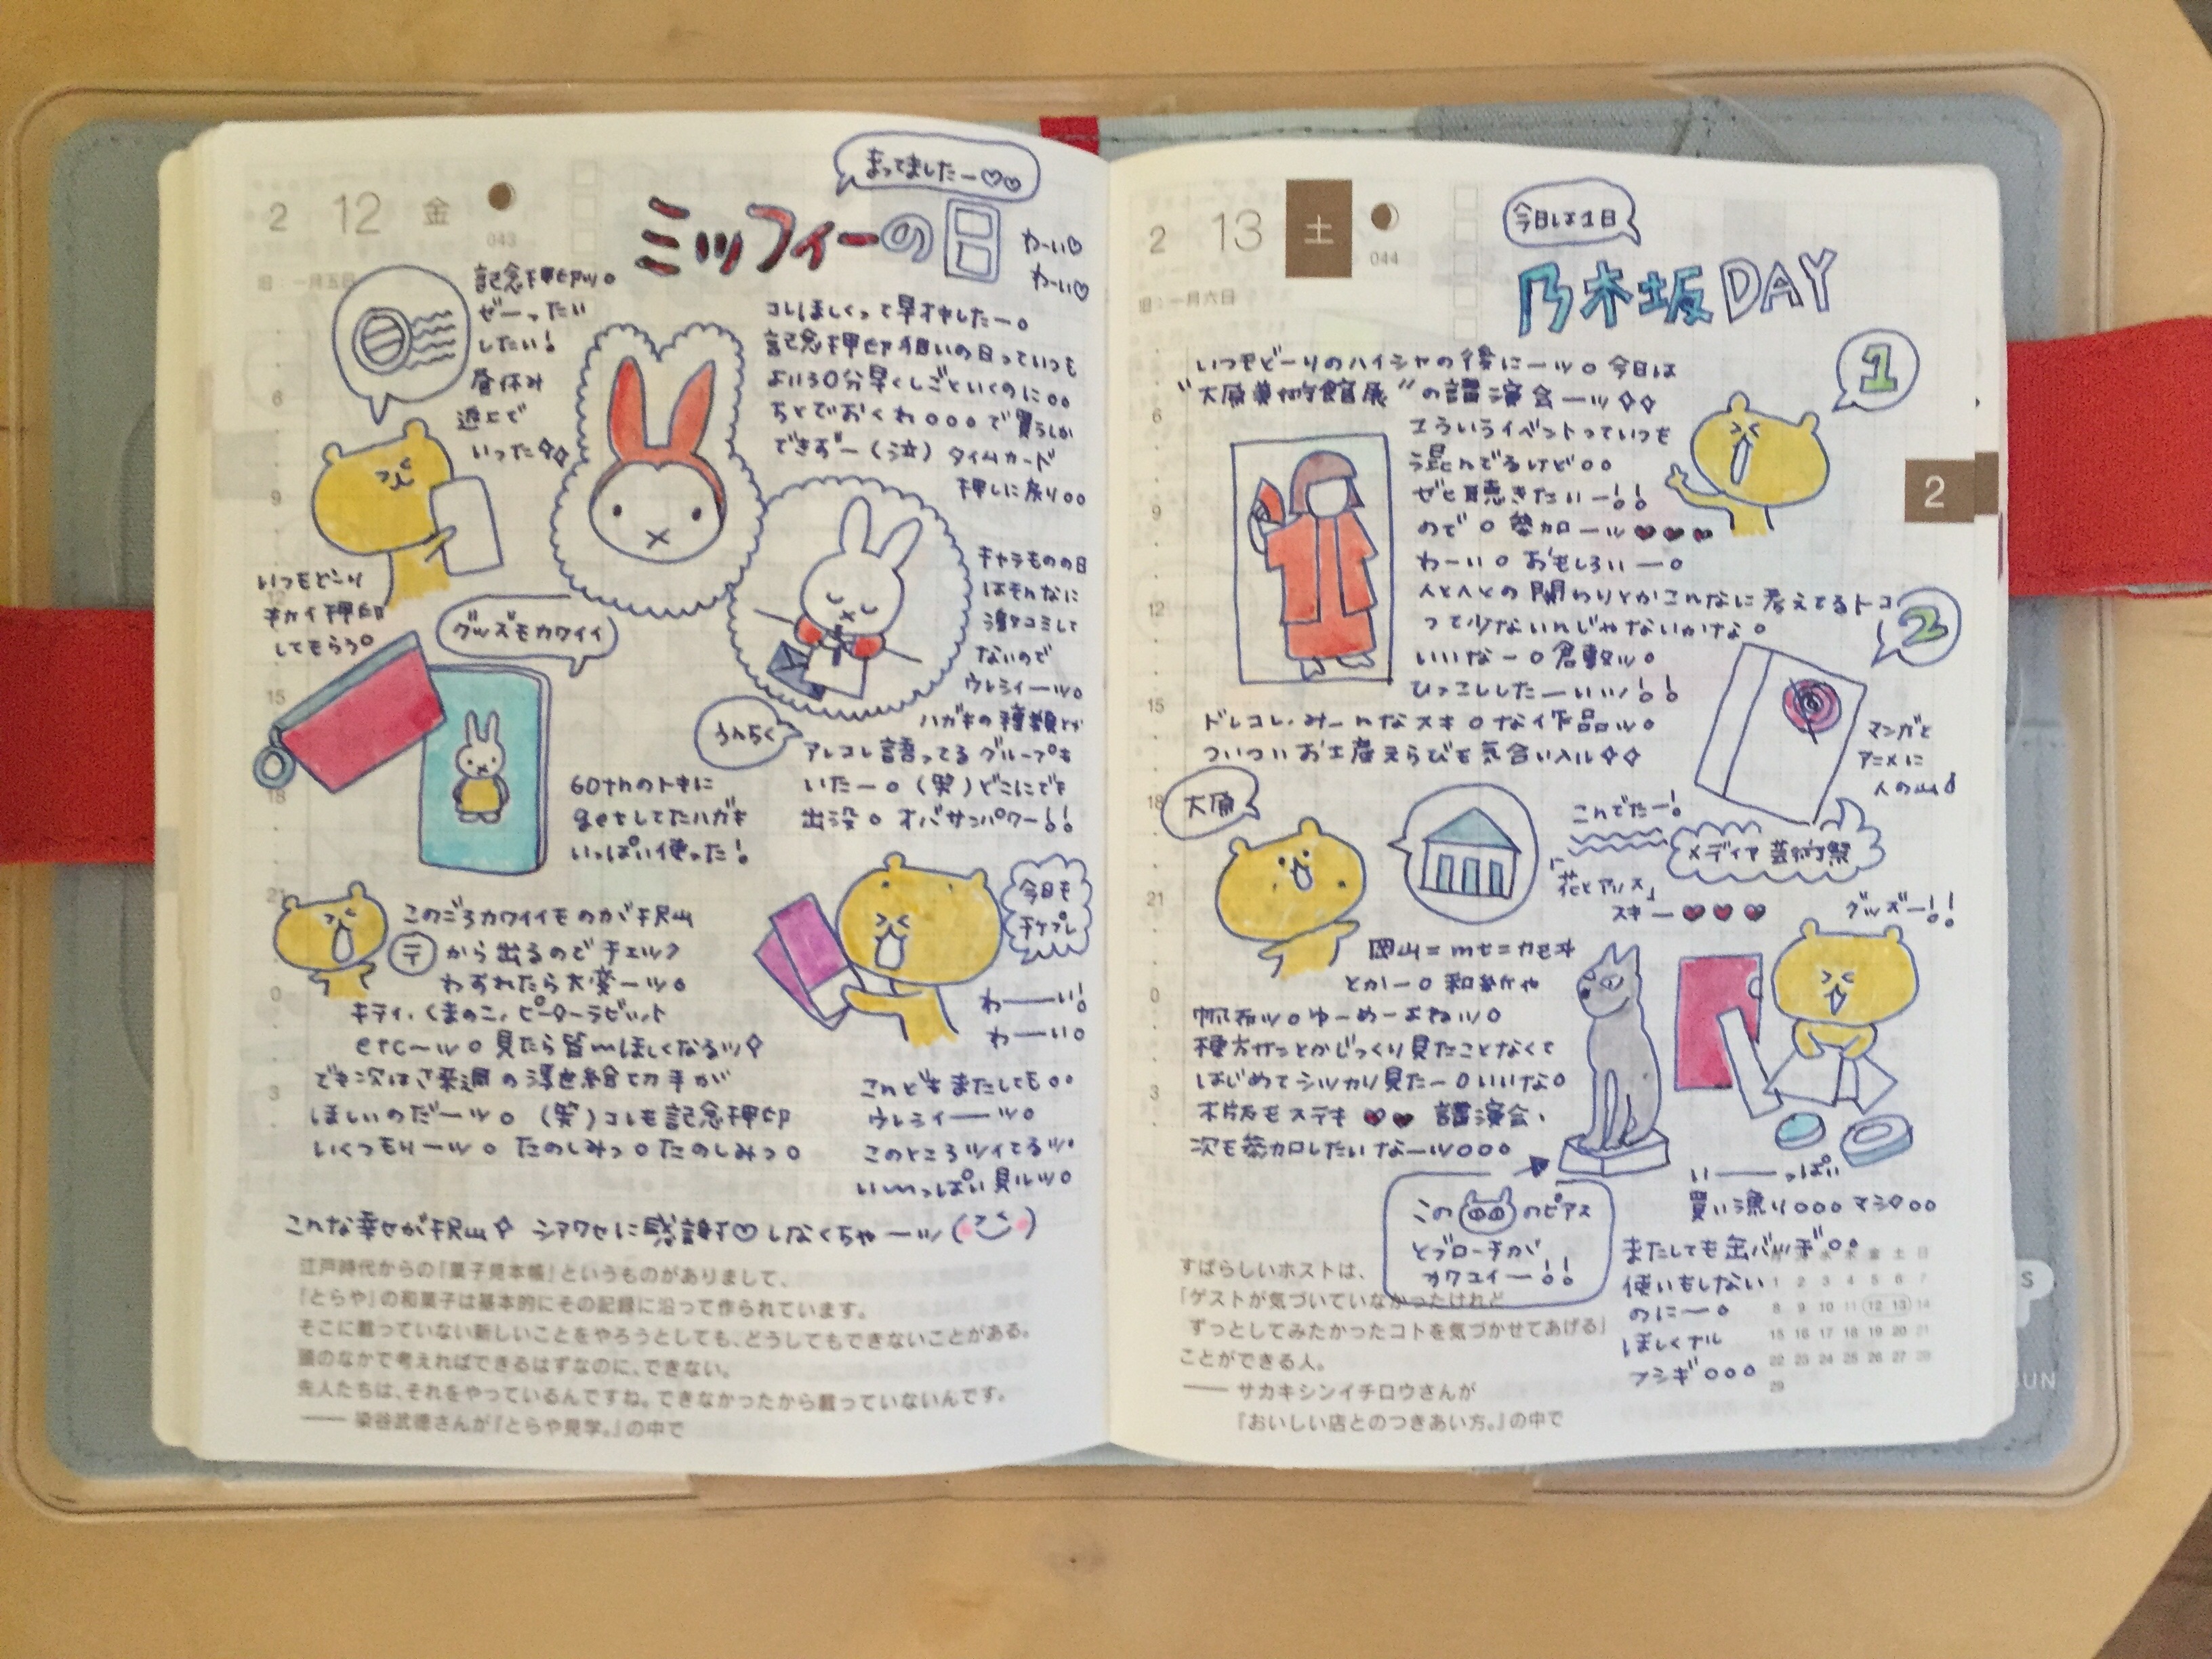 2 12 金
043
旧：一月五日
まってましたー♡♡
ミッフィーの日
わーい♡
わーい♡
記念押印ッ。
ぜーったい
したい！
昼休み
返上で
いった
いつもどーり
キカイ押印
してもらう。
コレほしくって早オキしたー。
記念押印狙いの日っていつも
より30分早くしごといくのに。。
ちとでおくれ。。。で買うしか
できずー（泣）タイムカード
押しに戻り。。
キャラものの日
はそんなに
激コミして
ないので
ウレシイーッ。
うんちく
ハガキの種類とか
アレコレ語ってるグループも
いたー。（笑）どこにでも
出没。オバサンパワー！！
グッズもカワイイ
60thのトキに
getしてたハガキ
いっぱい使った！
このごろカワイイモのが沢山
〒から出るのでチェック
わすれたら大変ーッ。
キティ、くまのこ、ピーターラビット
etc〜ッ。見たら皆〜ほしくなるッ
でも次はさ来週の浮世絵切手が
ほしいのだーッ。（笑）コレも記念押印
いくつもりーッ。たのしみっ。たのしみっ。
今日も
チケプレ
わーーい！
わーーい。
これどもまたしても。。
ウレシイーーッ。
このところツイてるッ。
い〜っぱい見ルッ。
こんな幸せが沢山 シアワセに感謝♡しなくちゃーッ
江戸時代からの『菓子見本帳』というものがありまして、
『とらや』の和菓子は基本的にその記録に沿って作られています。
そこに載っていない新しいことをやろうとしても、どうしてもできないことがある。
頭のなかで考えればできるはずなのに、できない。
先人たちは、それをやっているんですね。できなかったから載っていないんです。
―― 染谷武徳さんが『とらや見学。』の中で
2 13 土
044
旧：一月六日
今日は1日
乃木坂DAY
いつもどーりのハイシャの後にーッ。今日は
"大原美術館展"の講演会ーッ
1
こういうイベントっていつも
混んでるけど。。
ぜヒ聴きたいー！！
ので。参加ーッ♥♥♥
わーい。おもしろいー。
人と人との関わりとかこんなに考えてるトコ
って少ないんじゃないかな。
いいなー。倉敷ッ。
ひっこししたーいッ！！
ドレコレ、みーんなスキ。な作品ッ。
ついついお土産えらびも気合い入ル
2
マンガと
アニメに
人の山
大原
こんでたー！
メディア芸術祭
「花とアリス」
スキー♥♥♥
グッズー！！
岡山＝mt＝カモヰ
とかー。和紙や
帆布ッ。ゆーめーよねッ。
棟方サンとかじっくり見たことなくて
はじめてシッカリ見たー。いいな。
木版もステキ♥♥ 講演会、
次も参加したいなーッ。。。
この のピアス
とブローチが
カワユイー！！
いーーっぱい
買い漁り。。。マシタ。。
またしても缶バッヂ。。
使いもしない
のにー。
ほしくナル
フシギ。。。
すばらしいホストは、
「ゲストが気づいていなかったけれど
ずっとしてみたかったコトを気づかせてあげる」
ことができる人。
―― サカキシンイチロウさんが
『おいしい店とのつきあい方。』の中で
月 火 水 木 金 土 日
1 2 3 4 5 6 7
8 9 10 11 12 13 14
15 16 17 18 19 20 21
22 23 24 25 26 27 28
29
2